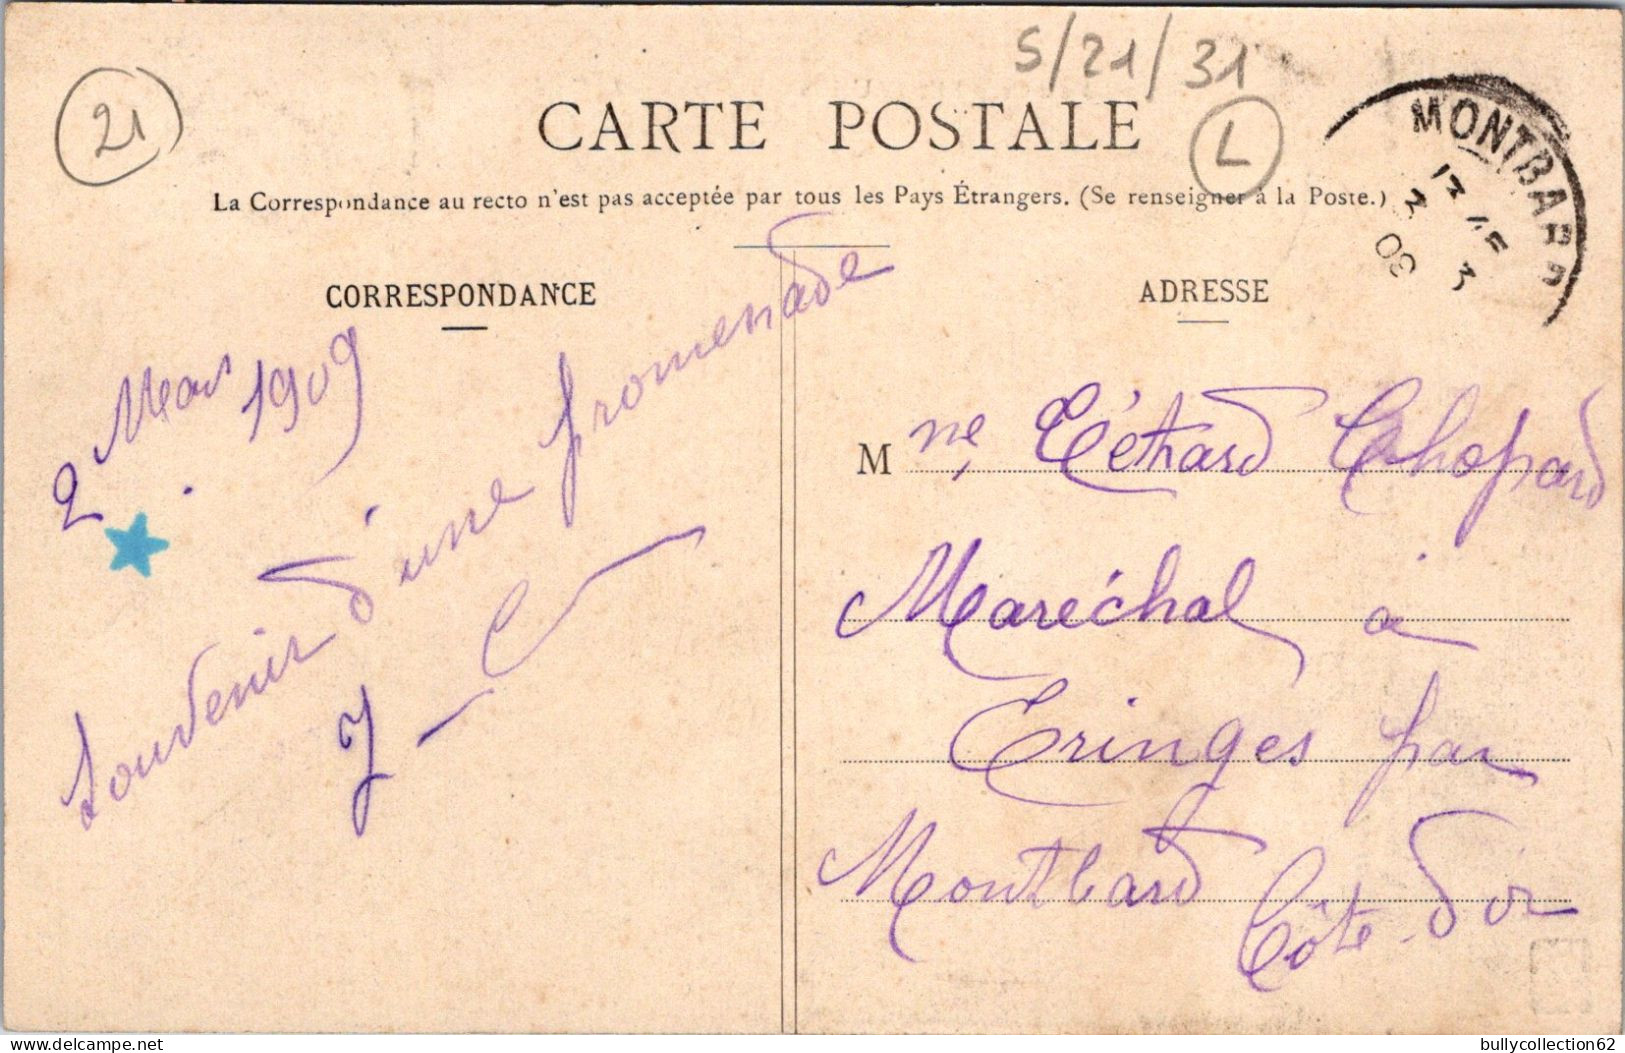 S/21/31
21
L
CARTE POSTALE
La Correspondance au recto n'est pas acceptée par tous les Pays Étrangers. (Se renseigner à la Poste.)
MONTBARD
CORRESPONDANCE
2 Mars 1909
Souvenir d'une promenade
J - C
ADRESSE
M ne Tétrard Chopard
Maréchal à
Eringes par
Montbard Côte-d'or
bullycollection62